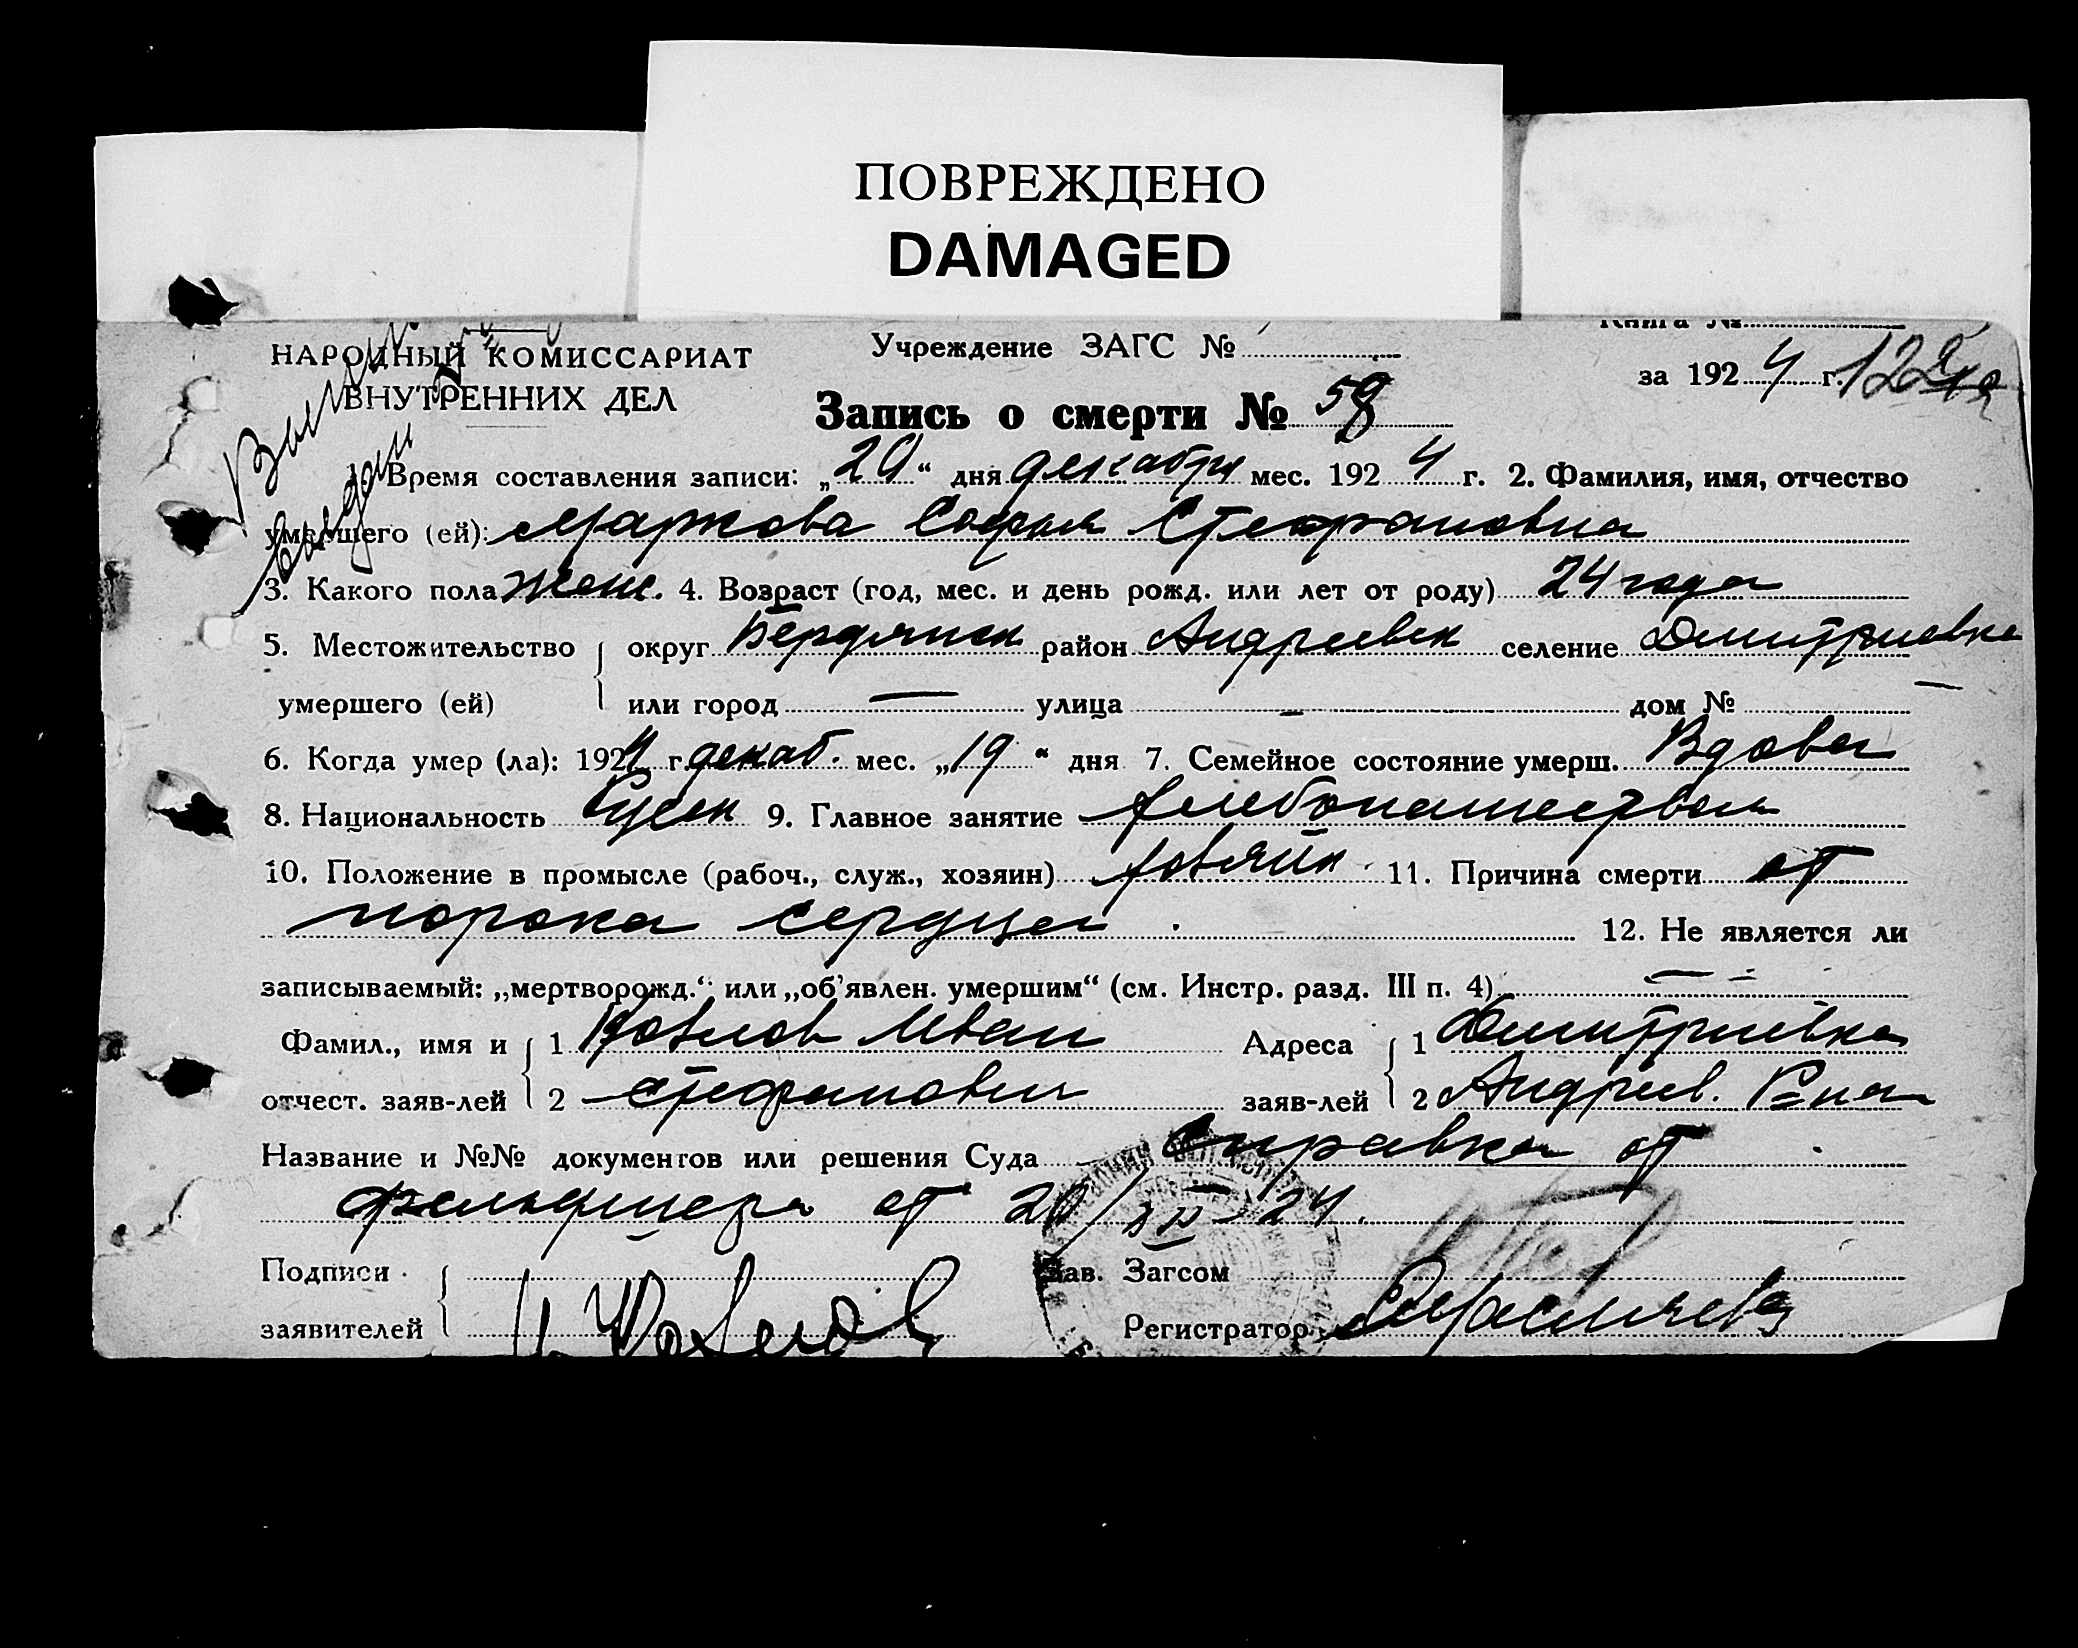 ПОВРЕЖДЕНО
DAMAGED
Книга №
НАРОДНЫЙ КОМИССАРИАТ
ВНУТРЕННИХ ДЕЛ
Учреждение ЗАГС №
за 1924 г.
Запись о смерти № 58
Время составления записи: „20“ дня декабря мес. 1924 г. 2. Фамилия, имя, отчество
умершего (ей): Маркова Софья Стефановна
3. Какого пола жен. 4. Возраст (год, мес. и день рожд. или лет от роду) 24 года
5. Местожительство округ Бердянск район Андреевск селение Дмитриевка
умершего (ей) или город — улица – дом № —
6. Когда умер (ла): 1924 г. декаб. мес. „19“ дня 7. Семейное состояние умерш. Вдова
8. Национальность Руск 9. Главное занятие
10. Положение в промысле (рабоч., служ., хозяин) 11. Причина смерти от
порока сердца 12. Не является ли
записываемый: „мертворожд.“ или „об’явлен. умершим“ (см. Инстр. разд. III п. 4) —
Фамил., имя и 1 Козлов Иван Адреса 1 Дмитриевка
отчест. заяв-лей 2 Стефанович заяв-лей 2 Андреев. Р-на
Название и №№ документов или решения Суда Справка от
фельдшера от 20/XII-24.
Подписи Зав. Загсом
заявителей И Козлов Регистратор